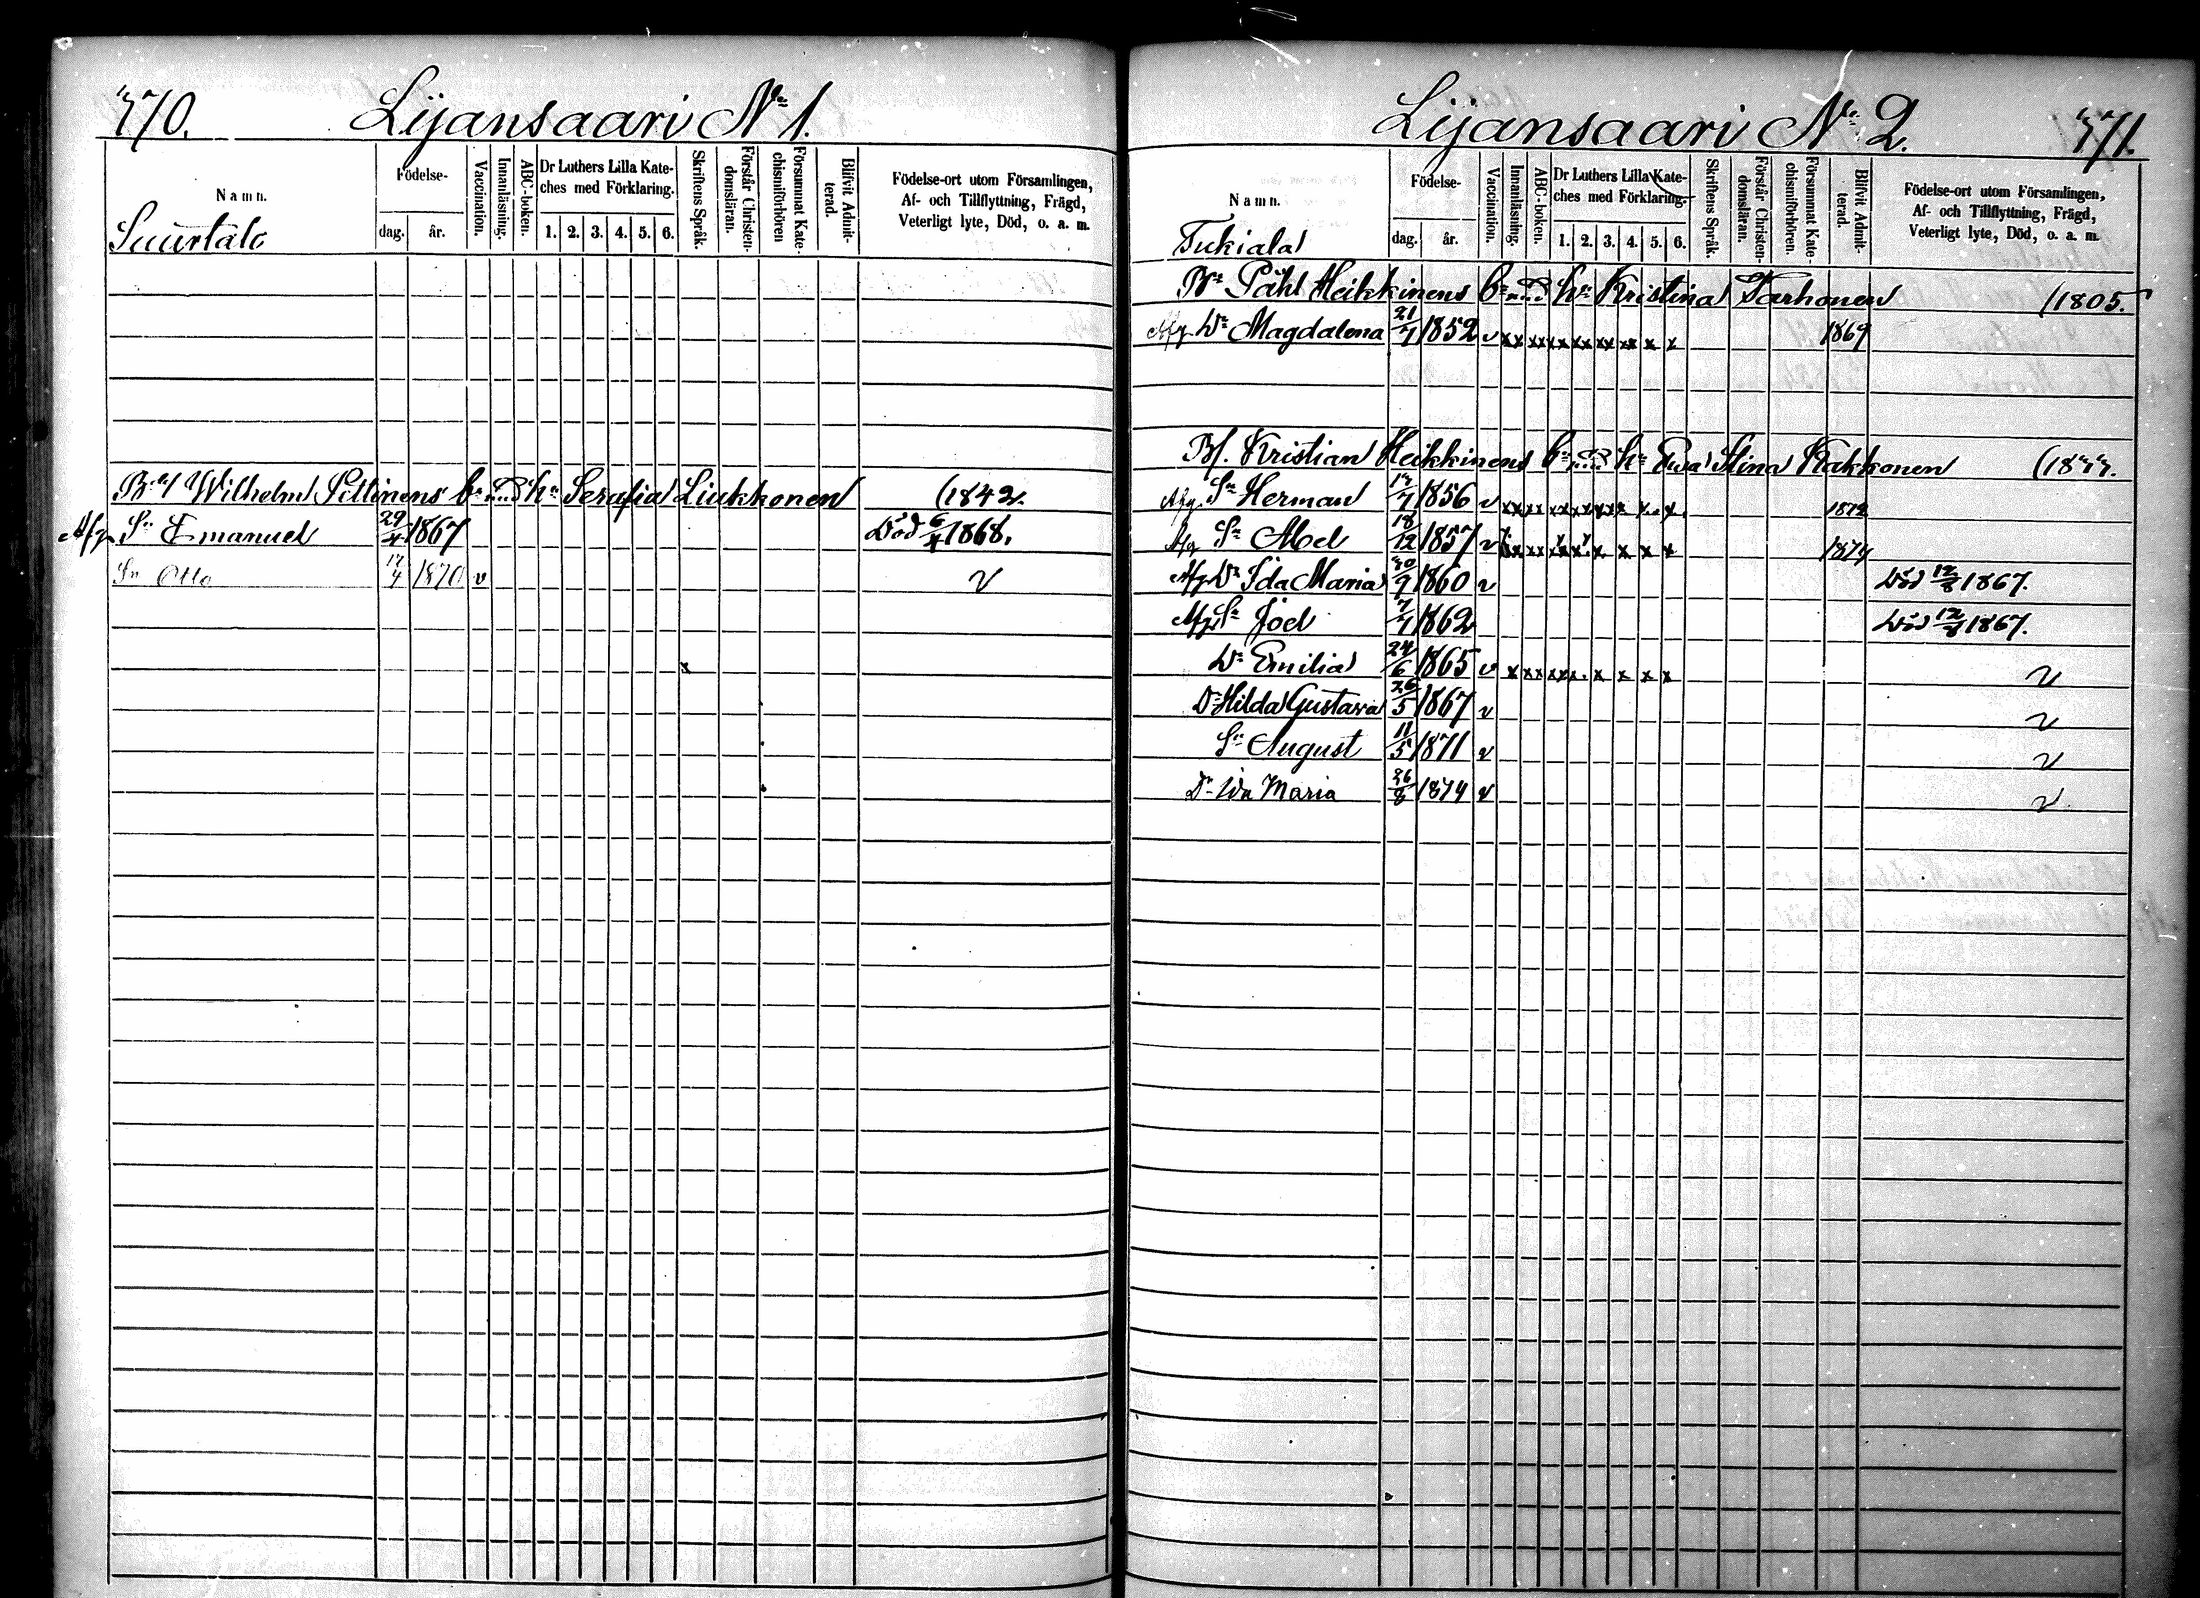 770.
Lijansaari No 1.
Namn.
Födelse-
dag.
år.
Vaccination.
Innanläsning.
ABC-boken.
Dr Luthers Lilla Kate-
ches med Förklaring.
1. 2. 3. 4. 5. 6.
Skriftens Språk.
Förstår Christen-
domsläran.
Försummat Kate-
chismiförhören
Blifvit Admit-
terad.
Födelse-ort utom Församlingen,
Af- och Tillflyttning, Frägd,
Veterligt lyte, Död, o. a. m.
Suurtalo
Wilhelm h:u Serafia Liukkonen (1842.
Afg. Sn Emanuel 29/4 1867 Död 6/4 1868.
Sn Otto 17/4 1870 v v
Lijansaari No 2.
771.
Namn.
Födelse-
dag.
år.
Vaccination.
Innanläsning.
ABC-boken.
Dr Luthers Lilla Kate-
ches med Förklaring.
1. 2. 3. 4. 5. 6.
Skriftens Språk.
Förstår Christen-
domsläran.
Försummat Kate-
chismiförhören.
Blifvit Admit-
terad.
Födelse-ort utom Församlingen,
Af- och Tillflyttning, Frägd,
Veterligt lyte, Död, o. a. m.
Tukiala
Påhl Heikkinens h:u Kristina Tarhonen (1805.
Afg. Dr Magdalena 21/7 1852 v x x x x x x x x x x x x 1869
Kristian Heikkinens h:u Ewa Stina Kakkonen
Afg. Sn Herman 1856 v x x x x x x x x x x x 1872
Afg Sn Abel 18/12 1857 v x x x x x x x x x 1874
Afg Dr Ida Maria 1860 v Död 12/8 1867.
Afg. Sn Joel 7/7 1862 Död 12/8 1867.
Dr Emilia 24/6 1865 v x x x x x x . x x x x v
Dr Hilda Gustava 26/5 1867 v v
Sn August 11/5 1871 v v
Dr Ida Maria 26/8 1874 v v